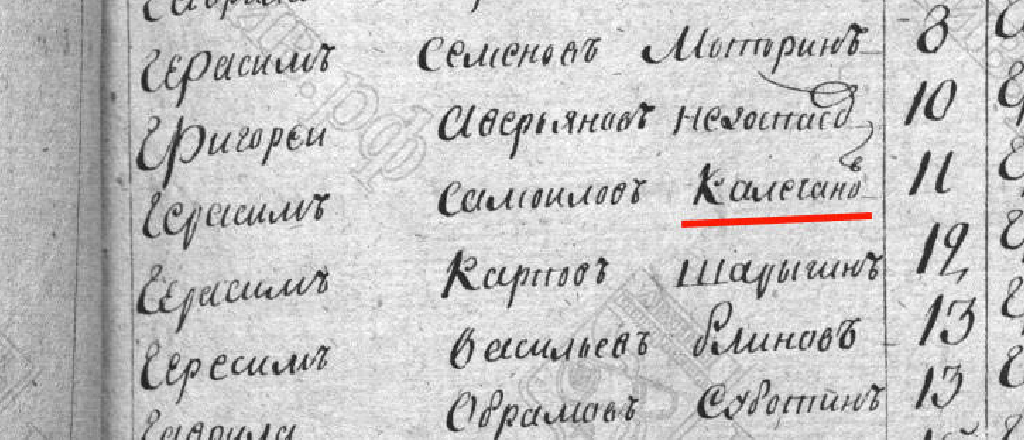 Герасимъ Семеновъ Моторинъ 8
Григореи Аверьяновъ 10
Герасимъ Самоиловъ Калегано в 11
Герасимъ Карповъ Шадыгинъ 12
Гересимъ Васильевъ Блиновъ 13
Гаврила Обрамовъ Суботинъ 13